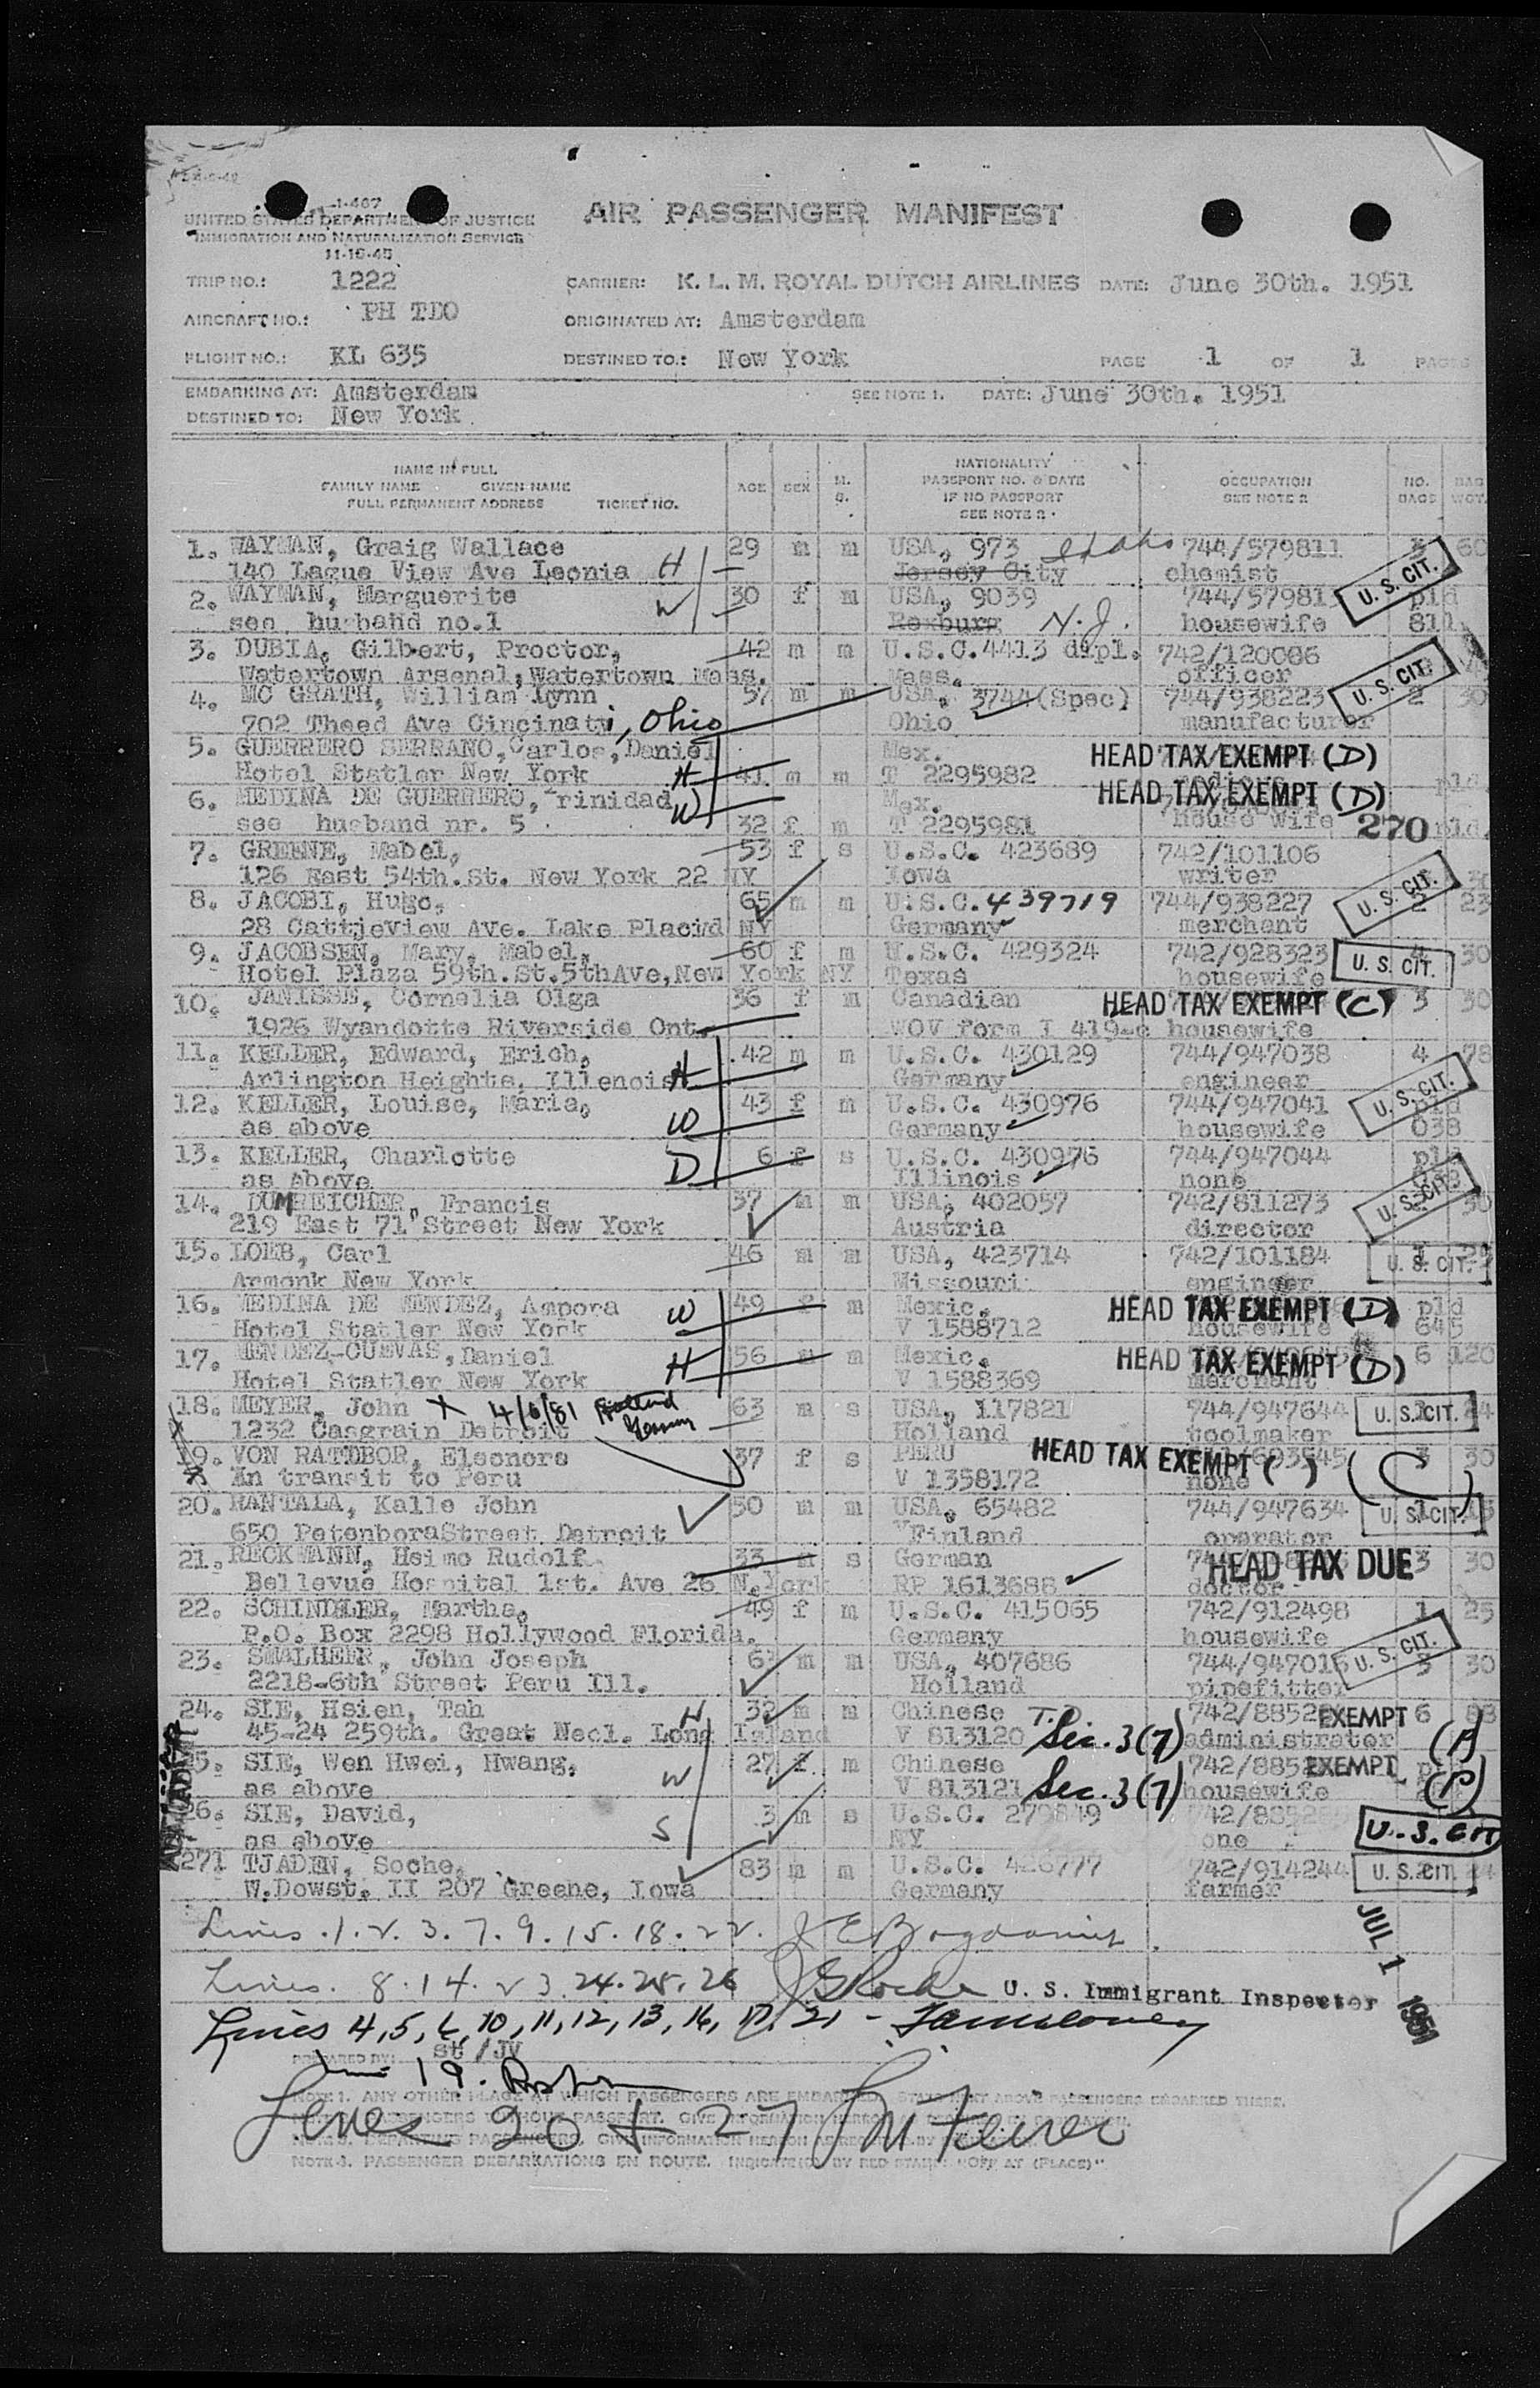 1-467
UNITED STATES DEPARTMENT OF JUSTICE
IMMIGRATION AND NATURALIZATION SERVICE
11-16-45
AIR PASSENGER MANIFEST
TRIP NO.: 1222 CARRIER: K. L. M. ROYAL DUTCH AIRLINES DATE: June 30th. 1951
AIRCRAFT NO.: PH TDO ORIGINATED AT: Amsterdam
FLIGHT NO.: KL 635 DESTINED TO.: New York PAGE 1 OF 1 PAGES
EMBARKING AT: Amsterdam SEE NOTE 1. DATE: June 30th. 1951
DESTINED TO: New York
NAME IN FULL
FAMILY NAME GIVEN NAME
FULL PERMANENT ADDRESS TICKET NO.
AGE SEX M. S.
NATIONALITY
PASSPORT NO. & DATE
IF NO PASSPORT
SEE NOTE 2
OCCUPATION
SEE NOTE 2
NO. BAGS BAG WGT.
1. WAYMAN, Graig Wallace H 29 m m USA, 973 Idaho 744/579811 3 60
140 Lague View Ave Leonia Jersey City chemist U. S. CIT.
2. WAYMAN, Marguerite W 30 f m USA, 9039 744/579813 pld
see husband no.1 Rexburg N.J. housewife 811
3. DUBIA, Gilbert, Proctor, 42 m m U.S.C.4413 dipl. 742/120086
Watertown Arsenal, Watertown Mass. Mass. officer U. S. CIT.
4. MC GRATH, William Lynn 57 m m USA, 3744(Spec) 744/938223 2 30
702 Theed Ave Cincinati, Ohio Ohio manufacturer
5. GUERRERO SERRANO, Carlos, Daniel Mex. HEAD TAX EXEMPT (D)
Hotel Statler New York H 41 m m T 2295982 pld
6. MEDINA DE GUERRERO, Trinidad W Mex. HEAD TAX EXEMPT (D)
see husband nr. 5 32 f m T 2295981 house wife 270 pld.
7. GREENE, Mabel, 53 f s U.S.C. 423689 742/101106
126 East 54th.St. New York 22 NY Iowa writer U. S. CIT.
8. JACOBI, Hugo, 65 m m U.S.C. 439719 744/938227 2 23
28 Cattjeview Ave. Lake Placid NY Germany merchant
9. JACOBSEN, Mary, Mabel, 60 f m U.S.C. 429324 742/928323 4 30
Hotel Plaza 59th.St.5thAve,New York NY Texas housewife U. S. CIT.
10. JANISSE, Cornelia Olga 36 f m Canadian HEAD TAX EXEMPT (C) 3 30
1926 Wyandotte Riverside Ont. WOV form I 419-c housewife
11. KELLER, Edward, Erich, 42 m m U.S.C. 430129 744/947038 4 78
Arlington Heights, Illenois H Germany engineer
12. KELLER, Louise, Maria, 43 f m U.S.C. 430976 744/947041 pld
as above W Germany housewife 038 U. S. CIT.
13. KELLER, Charlotte 6 f s U.S.C. 430976 744/947044 pld
as above D Illinois none
14. DUMREICHER, Francis 37 m m USA, 402057 742/811273 30
219 East 71 Street New York Austria director U. S. CIT.
15. LOEB, Carl 46 m m USA, 423714 742/101184
Armonk New York Missouri engineer U. S. CIT.
16. MEDINA DE MENDEZ, Ampora W 49 f m Mexic. HEAD TAX EXEMPT (D) pld
Hotel Statler New York V 1588712 housewife 645
17. MENDEZ-CUEVAS, Daniel H 56 m m Mexic. HEAD TAX EXEMPT (D) 6 120
Hotel Statler New York V 1588369 merchant
18. MEYER, John X 4/6/81 63 m s USA, 117821 744/947644 24
1232 Casgrain Detroit Holland toolmaker U. S. CIT.
19. VON RATIBOR, Eleonore 37 f s PERU HEAD TAX EXEMPT ( ) (C) 3 30
in transit to Peru V 1358172 none
20. RANTALA, Kalle John 50 m m USA, 65482 744/947634 1 15
650 PetenboraStreet Detroit Finland operator U. S. CIT.
21. RECKMANN, Heimo Rudolf 33 m s German HEAD TAX DUE 3 30
Bellevue Hospital 1st. Ave 26 N.York RP 1613688 doctor
22. SCHINDLER, Martha, 49 f m U.S.C. 415065 742/912498 1 25
P.O. Box 2298 Hollywood Florida. Germany housewife
23. SMALHEER, John Joseph m m USA, 407686 744/947015 3 30
2218-6th Street Peru Ill. Holland pipefitter U. S. CIT.
24. SIE, Hsien, Tah H 32 m m Chinese T.D. EXEMPT 6 88
45-24 259th. Great Necl. Long Island V 813120 Sec. 3(7) administrator (P)
25. SIE, Wen Hwei, Hwang, W 27 f m Chinese EXEMPT
as above V 813121 Sec. 3(7) housewife (P)
26. SIE, David, 3 m s U.S.C. 279849
as above S NY none U.S. CIT
271 TJADEN, Soche, 83 m m U.S.C. 426777 742/914244 24
W.Dowst. II 207 Greene, Iowa Germany farmer U. S. CIT.
Lines 1. 2. 3. 7. 9. 15. 18. 22.
Lines. 8. 14. 23. 24. 25. 26 U. S. Immigrant Inspector
Lines 4, 5, 6, 10, 11, 12, 13, 16, 17, 21 -
JUL 1 1951
PREPARED BY: st/JV
Line 19.
Lines 20 + 27
NOTE 1. ANY OTHER PLACE AT WHICH PASSENGERS ARE EMBARKED
NOTE 3. PASSENGER DEBARKATIONS EN ROUTE. INDICATED BY RED STAMP "OFF AT (PLACE)"